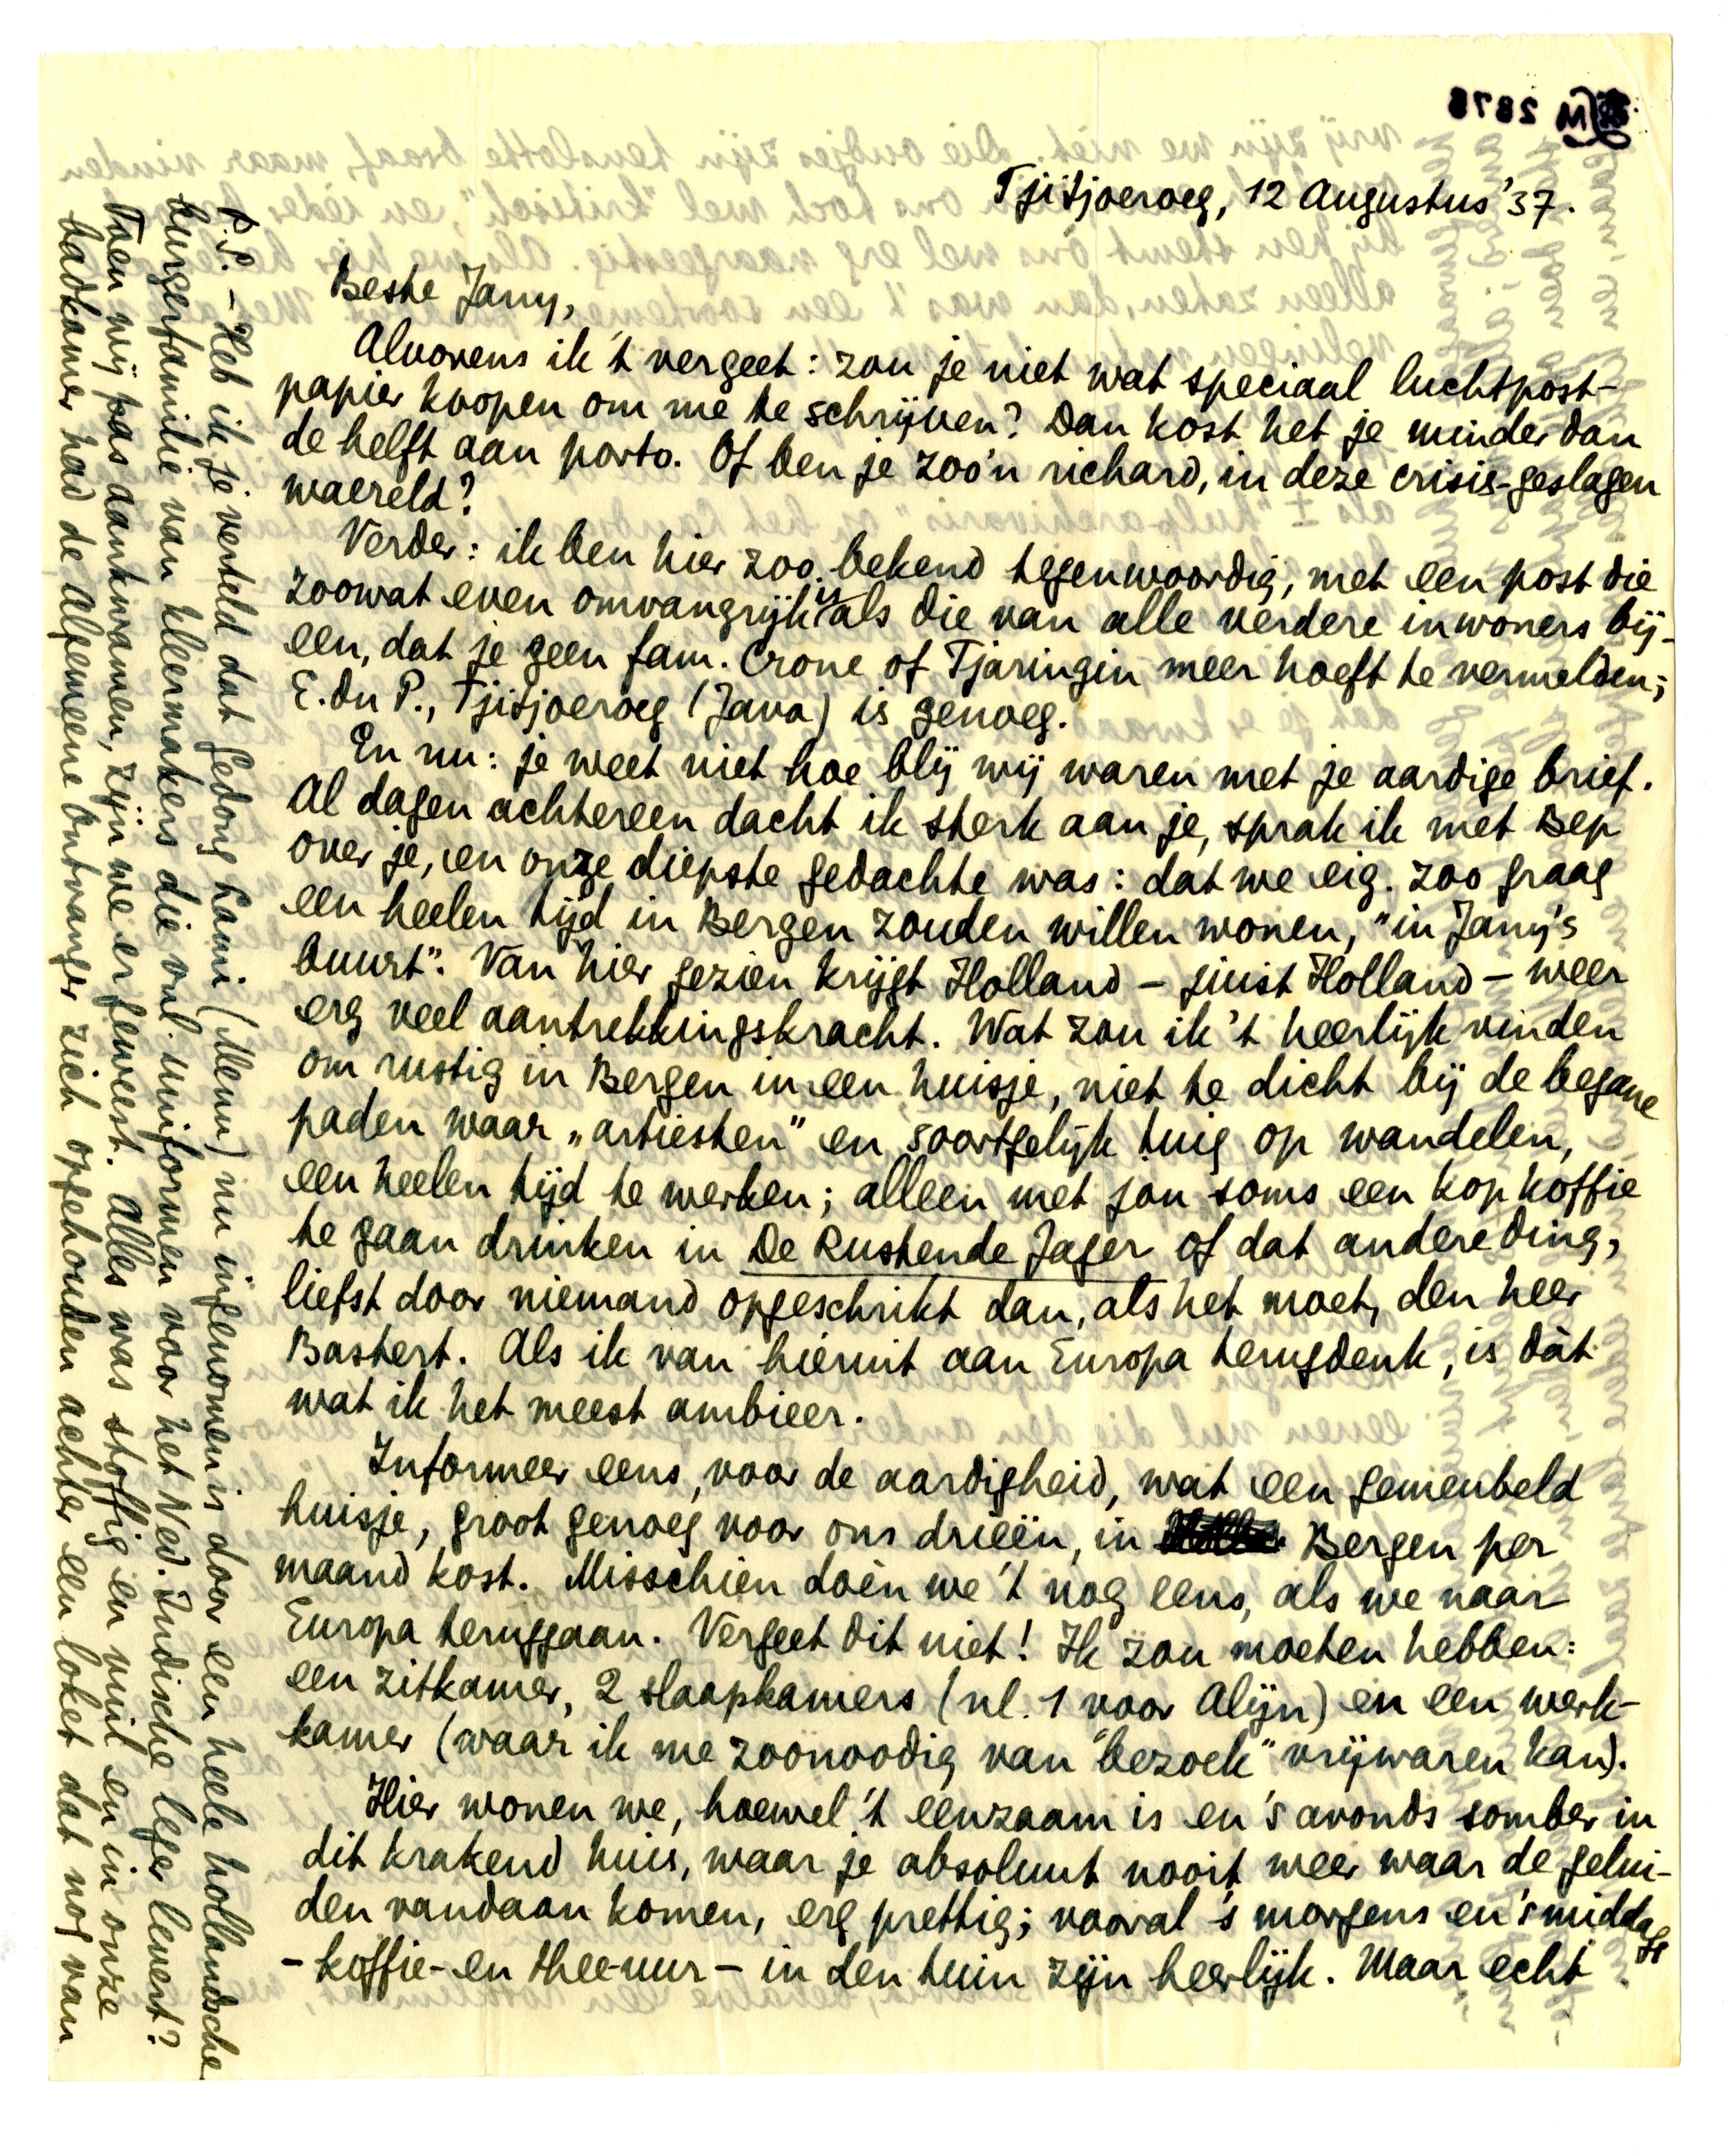 Tjitjoeroeg, 12 Augustus '37.
Beste Jany,
Alvorens ik 't vergeet: zou je niet wat speciaal luchtpost-
papier koopen om me te schrijven? Dan kost het je minder dan
de helft aan porto. Of ben je zoo'n richard, in deze crisis-geslagen
waereld?
Verder: ik ben hier zoo bekend tegenwoordig, met een post die
zoowat even omvangrijk is als die van alle verdere inwoners bij-
een, dat je geen fam. Crone of Tjaringin meer hoeft te vermelden;
E. du P., Tjitjoeroeg (Java) is genoeg.
En nu: je weet niet hoe blij wij waren met je aardige brief.
Al dagen achtereen dacht ik sterk aan je, sprak ik met Bep
over je, en onze diepste gedachte was: dat we eig. zoo graag
een heelen tijd in Bergen zouden willen wonen, "in Jany's
buurt". Van hier gezien krijgt Holland – juist Holland – weer
erg veel aantrekkingskracht. Wat zou ik 't heerlijk vinden
om rustig in Bergen in een huisje, niet te dicht bij de begane
paden waar „artiesten" en soortgelijk tuig op wandelen,
een heelen tijd te werken; alleen met jou soms een kop koffie
te gaan drinken in De Rustende Jager of dat andere ding,
liefst door niemand opgeschrikt dan, als het moet, den heer
Bastert. Als ik van hieruit aan Europa terugdenk, is dàt
wat ik het meest ambieer.
Informeer eens, voor de aardigheid, wat een gemeubeld
huisje, groot genoeg voor ons drieën, in Bergen per
maand kost. Misschien doen we 't nog eens, als we naar
Europa teruggaan. Vergeet dit niet! Ik zou moeten hebben:
een zitkamer, 2 slaapkamers (nl. 1 voor Alijn) en een werk-
kamer (waar ik me zoonoodig van "bezoek" vrijwaren kan).
Hier wonen we, hoewel 't eenzaam is en 's avonds somber in
dit krakend huis, waar je absoluut nooit weer waar de gelui-
den vandaan komen, erg prettig; vooral 's morgens en 's middags
– koffie- en thee-uur – in den tuin zijn heerlijk. Maar echt
P.S. – Heb ik je verteld dat Gedong Lami (Menu) nu ingenomen is door een heele hollandsche
burgerfamilie van kleermakers die vnl. uniformen voor het Ned. Indische leger levert?
Toen wij pas aankwamen, zijn we er geweest. Alles was stoffig en vuil en in onze
badkamer had de Algemeene Ontvanger zich opgehouden achter een loket dat nog van